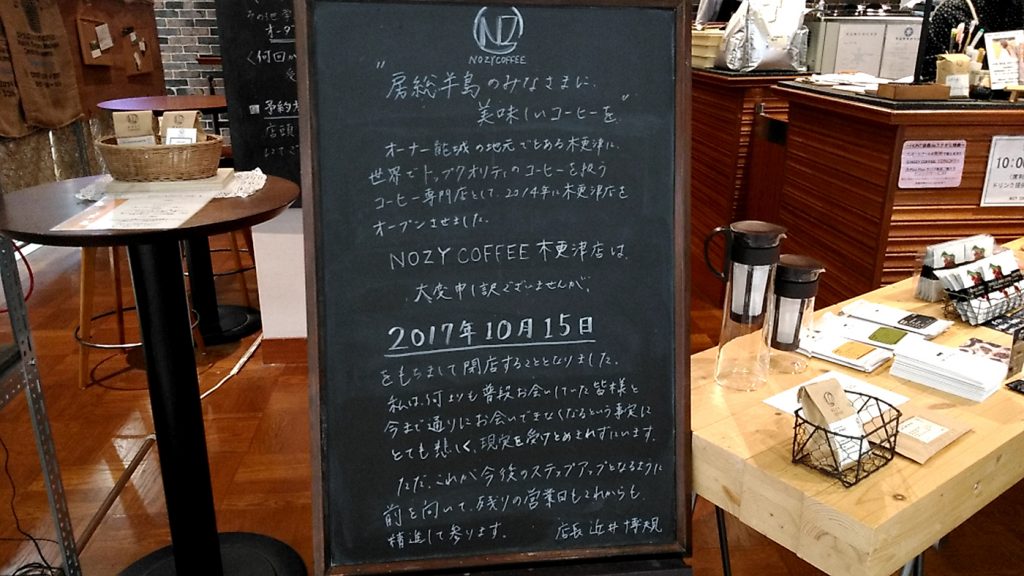 NOZY COFFEE
"房総半島のみなさまに、
美味しいコーヒーを"
オーナー能城の地元でもある木更津に、
世界でトップクオリティのコーヒーを扱う
コーヒー専門店として、2014年に木更津店を
オープンさせました。
NOZY COFFEE 木更津店は、
大変申し訳ございませんが、
2017年10月15日
をもちまして閉店することとなりました。
私は、何よりも普段お会いしていた皆様と
今まで通りにお会いできなくなるという事実に
とても悲しく、現実を受けとめきれずにいます。
ただ、これが今後のステップアップとなるように
前を向いて、残りの営業日もこれからも、
精進して参ります。 店長 近井
何回か
■予約
店頭
10:0